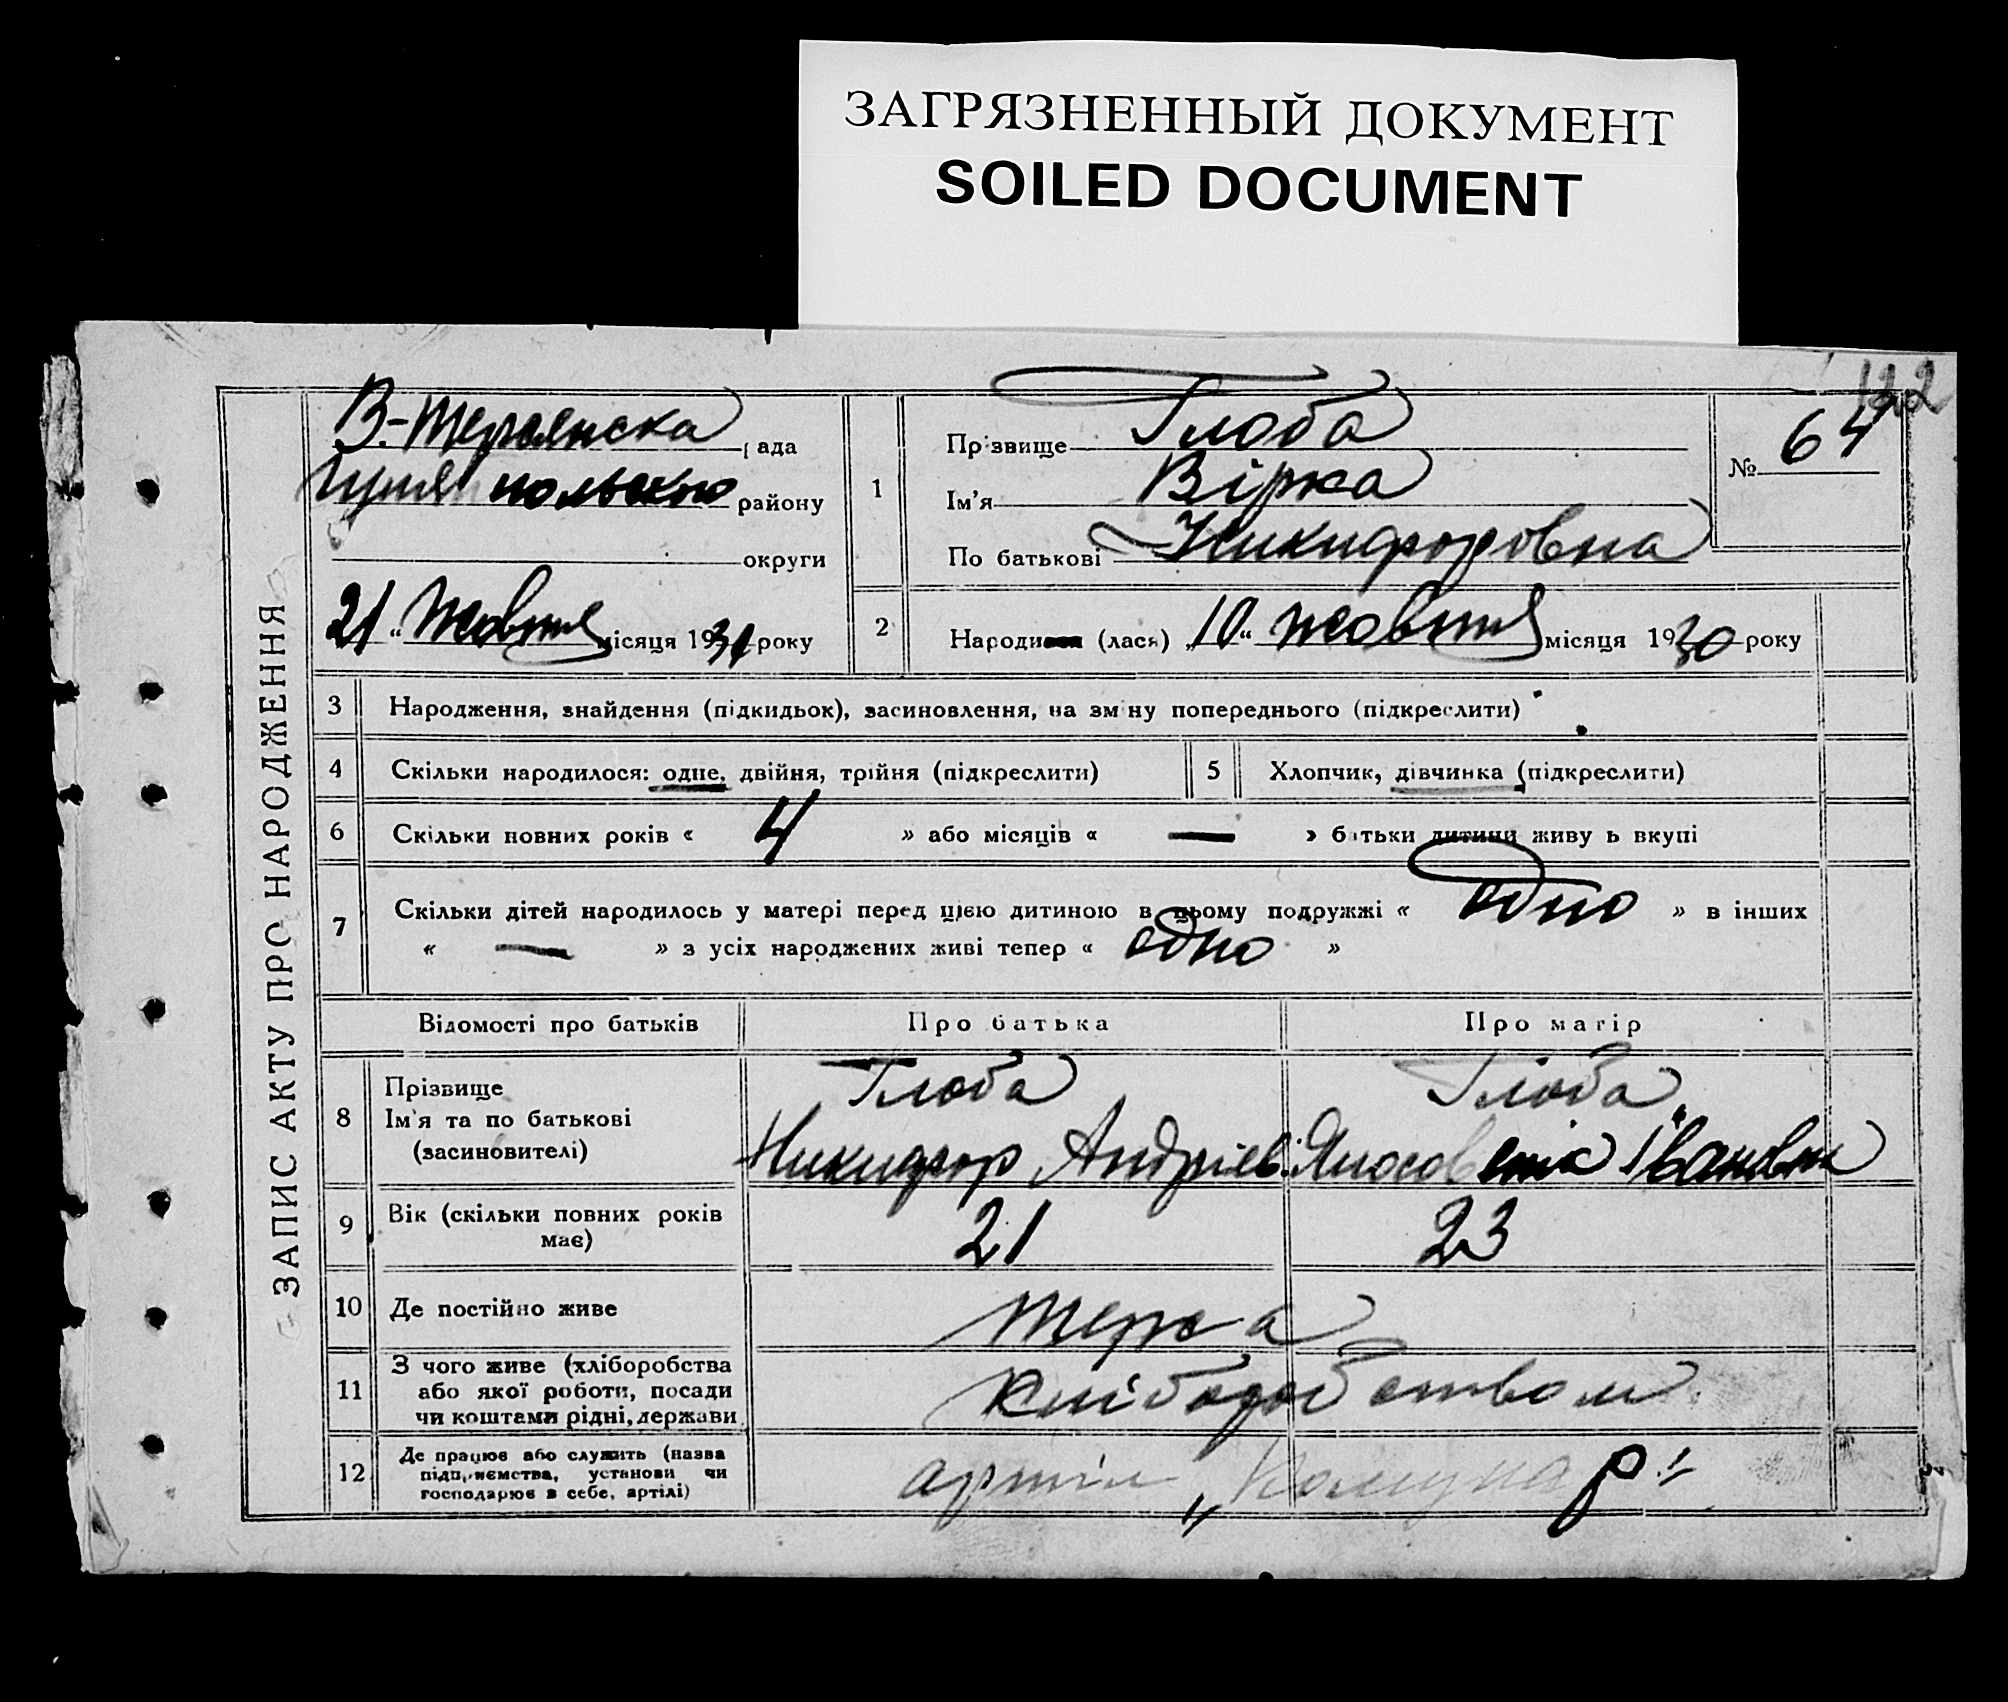 ЗАГРЯЗНЕННЫЙ ДОКУМЕНТ
SOILED DOCUMENT
122
ЗАПИС АКТУ ПРО НАРОДЖЕННЯ
В.-Терсянска рада
Гуляйпольского району
округи
21 " Жовтня місяця 1931 року
1
Прізвище Глоба
Ім'я Вірка
По батькові Никифоровна
№ 64
2 Народився (лася) „10" жовтня місяця 1930 року
3 Народження, знайдення (підкидьок), засиновлення, на зміну попереднього (підкреслити)
4 Скільки народилося: одне, двійня, трійня (підкреслити)
5 Хлопчик, дівчинка (підкреслити)
6 Скільки повних років « 4 » або місяців « — » батьки дитини живуть вкупі
7 Скільки дітей народилось у матері перед цією дитиною в цьому подружжі « одно » в інших
« — » з усіх народжених живі тепер « одно »
Відомості про батьків Про батька Про матір
8 Прізвище
Ім'я та по батькові
(засиновителі)
Глоба
Никифор Андріев.
Глоба
Івановна
9 Вік (скільки повних років
має)
21 23
10 Де постійно живе Терса
11 З чого живе (хліборобства
або якої роботи, посади
чи коштами рідні, держави
Хліборобством
12 Де працює або служить (назва
підприємства, установи чи
господарює в себе, артілі)
артіль „Комунар"